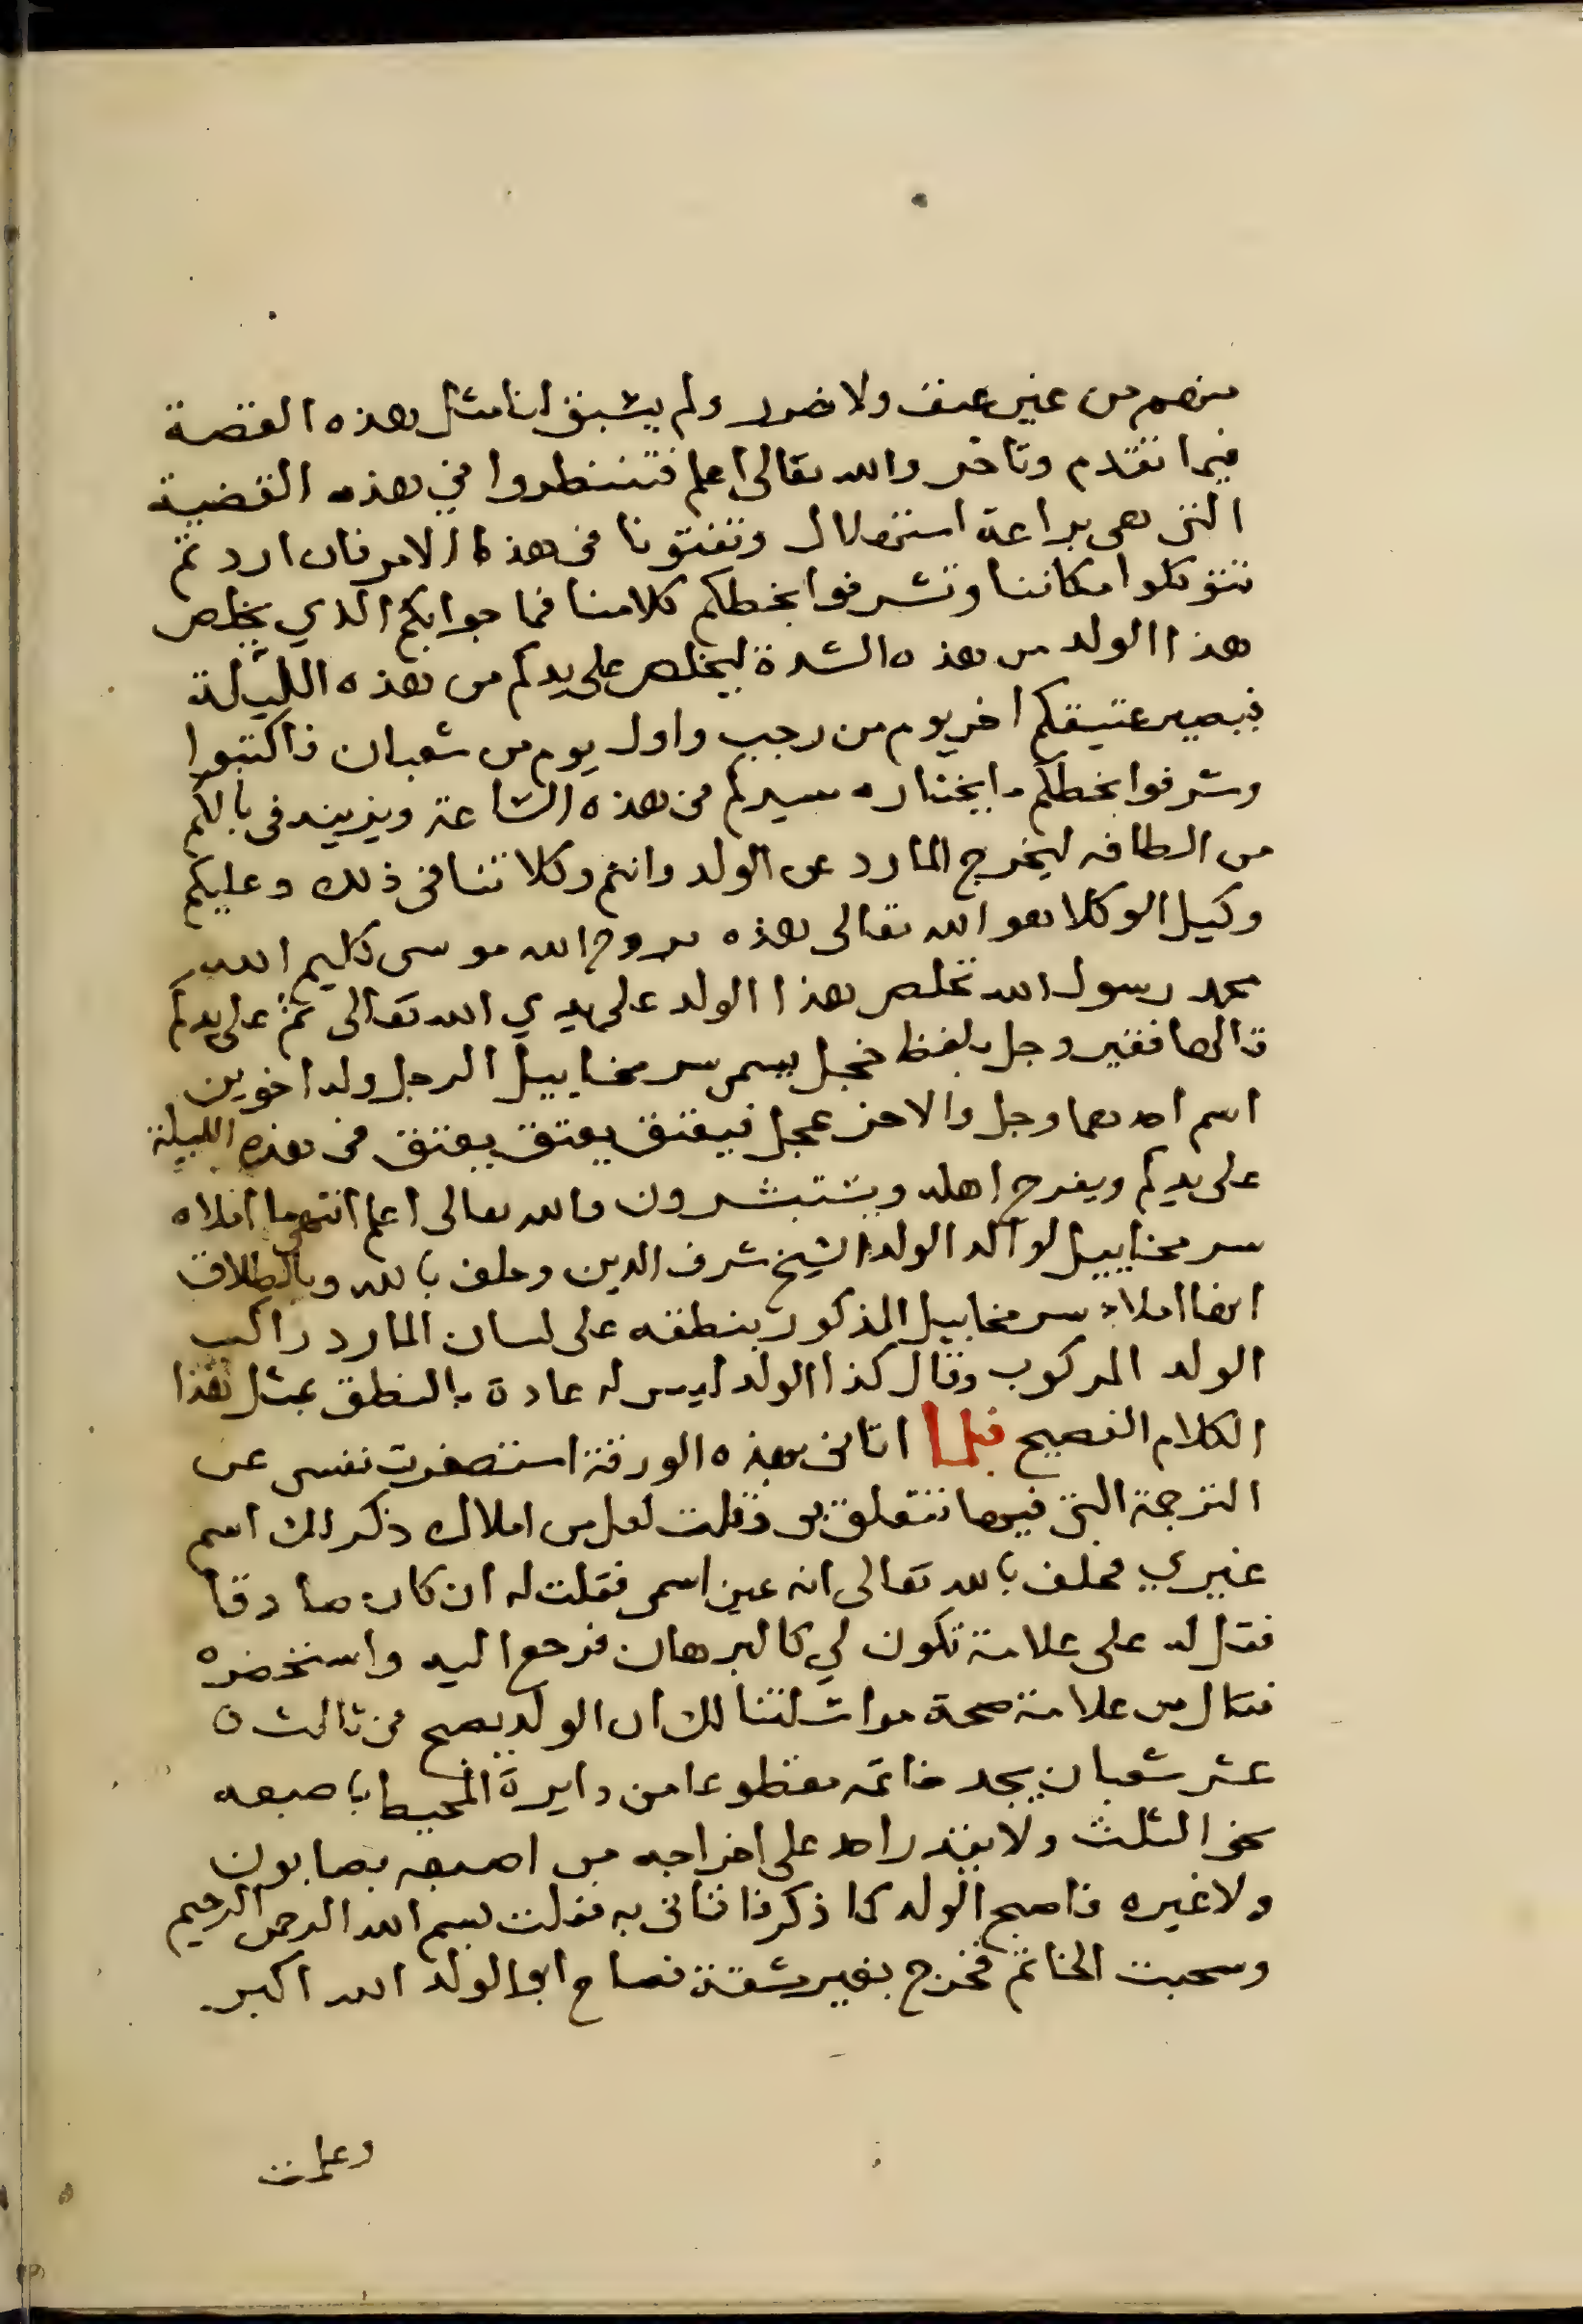 منهم من غير عنف ولا ضرر ولم يسبق لنا مثل هذه القصة
فيما تقدم وتاخر والله تعالى اعلم فتنظروا في هذه القضية
التى هى براعة استهلال وتفتونا فى هذا الامر فان اردتم
تتوكلوا مكاننا وتشرفوا بخطكم كلامنا فما جوابكم الذي يخلص
هذا الولد من هذه الشدة ليخلص على يدكم من هذه الليلة
فيصير عتيقكم اخر يوم من رجب واول يوم من شعبان فاكتبوا
وشرفوا بخطكم ما يختاره سيدكم فى هذه الساعة ويزيد فى بالكم
من الطافه ليخرج المارد عن الولد وانتم وكلاتنا فى ذلك وعليكم
وكيل الوكلا هو الله تعالى هذه بروح الله موسى كليم الله
محمد رسول الله تخلص هذا الولد على يدي الله تعالى ثم على يدكم
قالها فقير وجل بلفظ خجل يسمى سر مخاييل الرجل وله اخوين
اسم احدهما وجل والاخر عجل فيعتق يعتق يعتق فى هذه الليلة
على يدكم ويفرح اهله ويستبشرون والله تعالى اعلم انتهى ما املاه
سر مخاييل لوالد الولد الشيخ شرف الدين وحلف بالله وبالطلاق
انها املاء سر مخاييل المذكور بنطقه على لسان المارد راكب
الولد المركوب وقال كذا الولد ليس له عادة بالنطق بمثل هذا
الكلام الفصيح فلما اتانى بهذه الورقة استصغرت نفسى عن
الترجمة التى فيها تتعلق بى وقلت لعل من املاك ذكر لك اسم
غيري فحلف بالله تعالى انه عين اسمى فقلت له ان كان صادقا
فقل له على علامة تكون لي كالبرهان فرجع اليه واستحضره
فقال من علامة صحة مراسلتنا لك ان الولد يصبح فى ثالث
عشر شعبان يجد خاتمه مقطوعا من دايرة المحيط باصبعه
نحو الثلث ولا يقدر احد على اخراجه من اصبعه بصابون
ولا غيره فاصبح الولد كما ذكر فاتانى به فقلت بسم الله الرحمن الرحيم
وسحبت الخاتم فخرج بغير مشقة فصاح ابو الولد الله اكبر
وعلمت